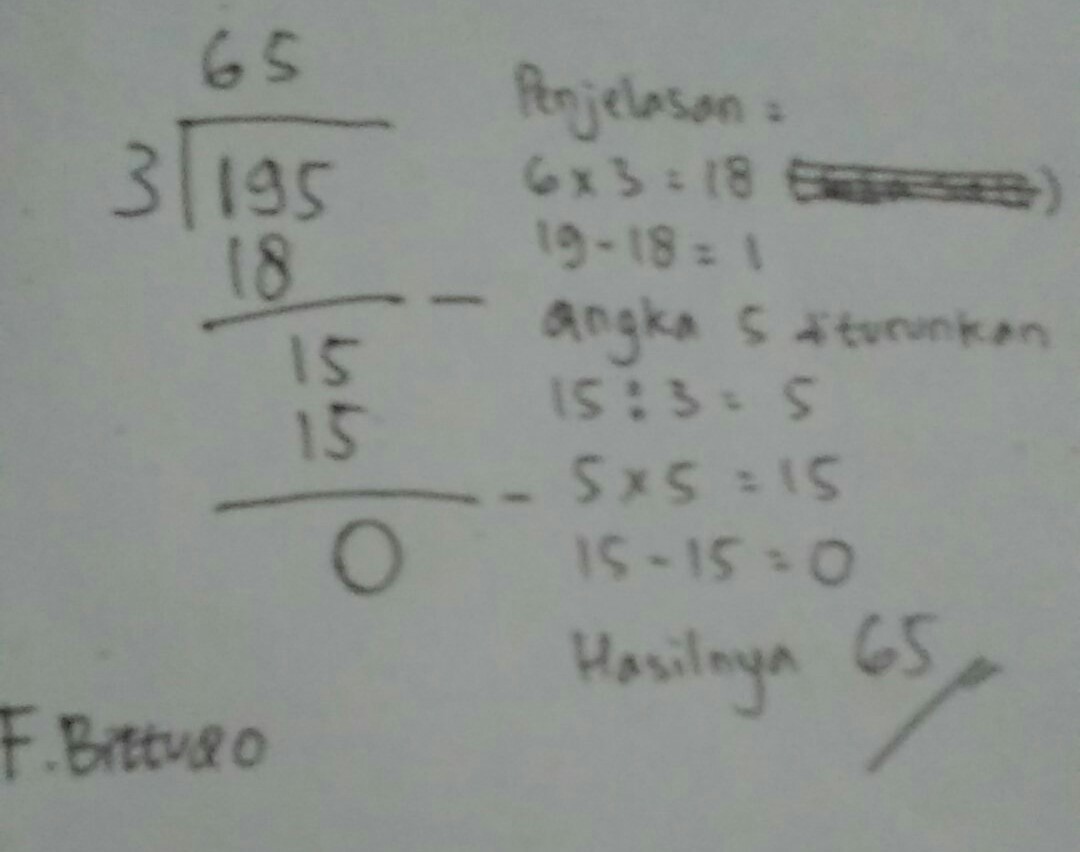 65
3 195
18
-
15
15
-
0
Penjelasan =
6 x 3 = 18
19 - 18 = 1
angka 5 diturunkan
15 : 3 = 5
5 x 5 = 15
15 - 15 = 0
Hasilnya 65